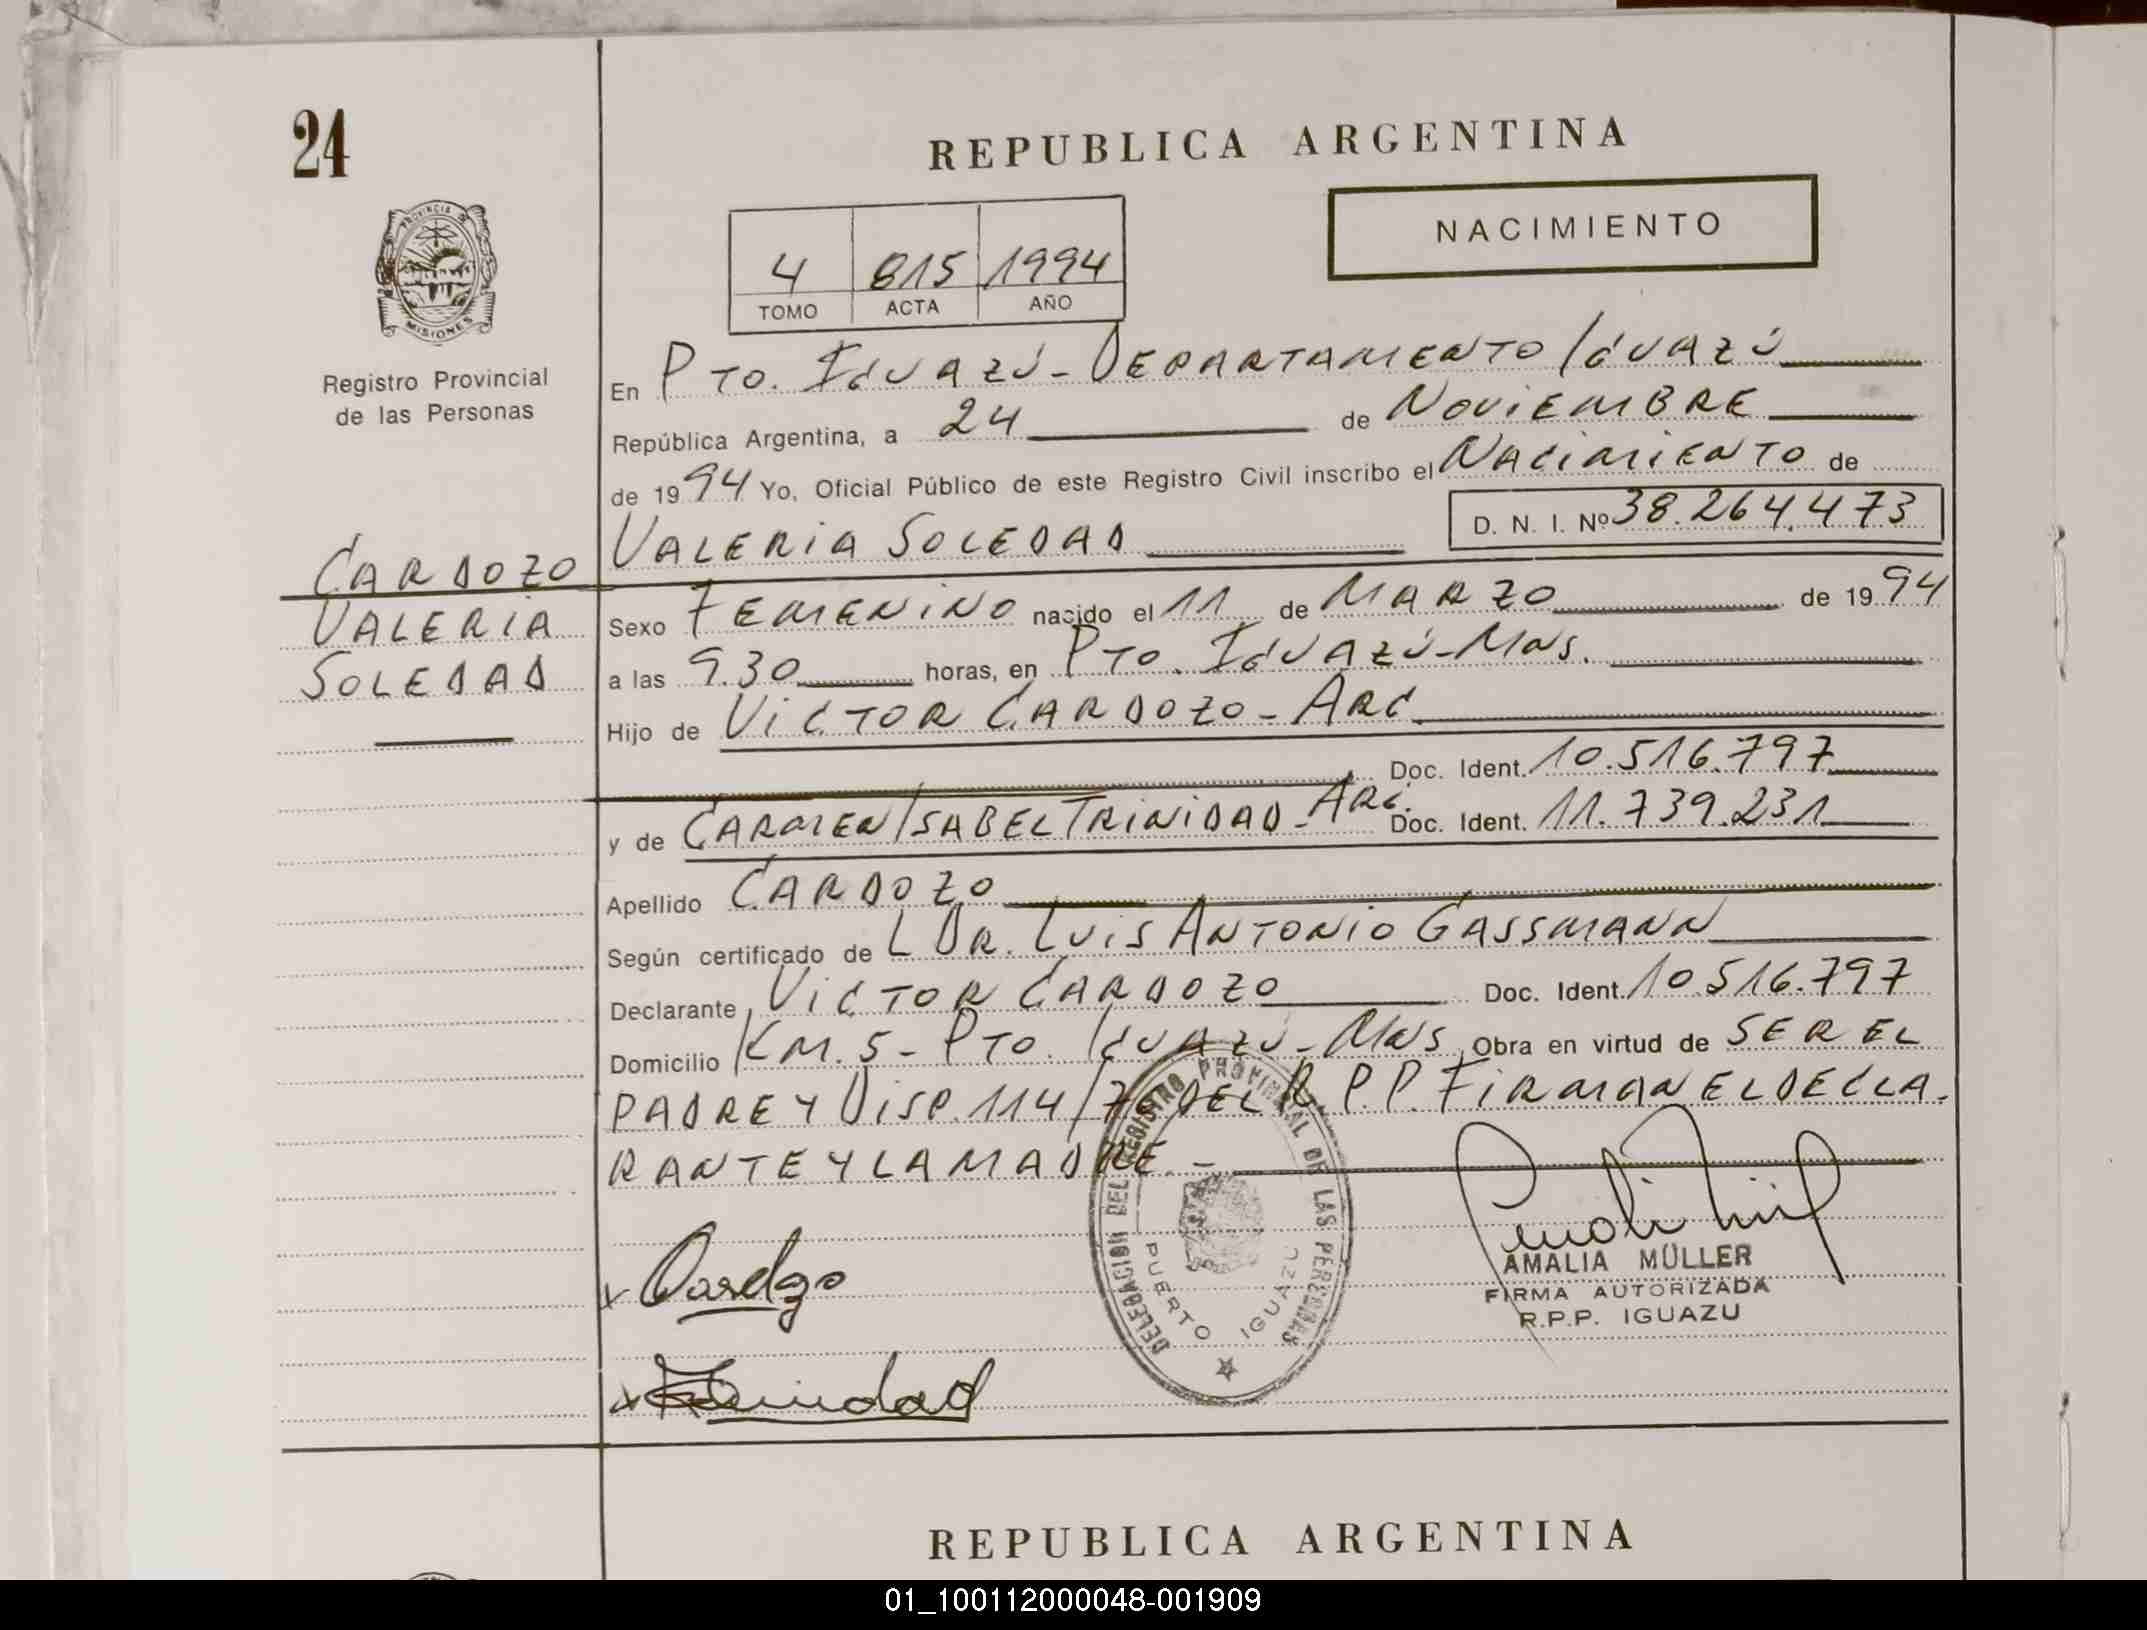 24
REPUBLICA ARGENTINA
NACIMIENTO
4 815 1994
TOMO ACTA AÑO
PROVINCIA DE
MISIONES
Registro Provincial
de las Personas
En PTO. IGUAZÚ - DEPARTAMENTO IGUAZÚ
República Argentina, a 24 de NOVIEMBRE
de 1994 Yo, Oficial Público de este Registro Civil inscribo el NACIMIENTO de
D. N. I. Nº 38.264.473
CARDOZO
VALERIA
SOLEDAD
VALERIA SOLEDAD
Sexo FEMENINO nacido el 11 de MARZO de 1994
a las 9.30 horas, en PTO. IGUAZÚ - MNS.
Hijo de VICTOR CARDOZO - ARG.
Doc. Ident. 10.516.797
y de CARMEN ISABEL TRINIDAD - ARG. Doc. Ident. 11.739.231
Apellido CARDOZO
Según certificado de L DR. LUIS ANTONIO GASSMANN
Declarante VICTOR CARDOZO Doc. Ident. 10.516.797
Domicilio KM. 5 - PTO. IGUAZÚ - MNS Obra en virtud de SER EL
PADRE Y DISP. 114/78 DEL R.P.P. FIRMAN EL DECLA.
RANTE Y LA MADRE. -
DELEGACION DEL REGISTRO PROVINCIAL DE LAS PERSONAS
PUERTO IGUAZU
Cardozo
Trinidad
AMALIA MÜLLER
FIRMA AUTORIZADA
R.P.P. IGUAZU
REPUBLICA ARGENTINA
01_100112000048-001909